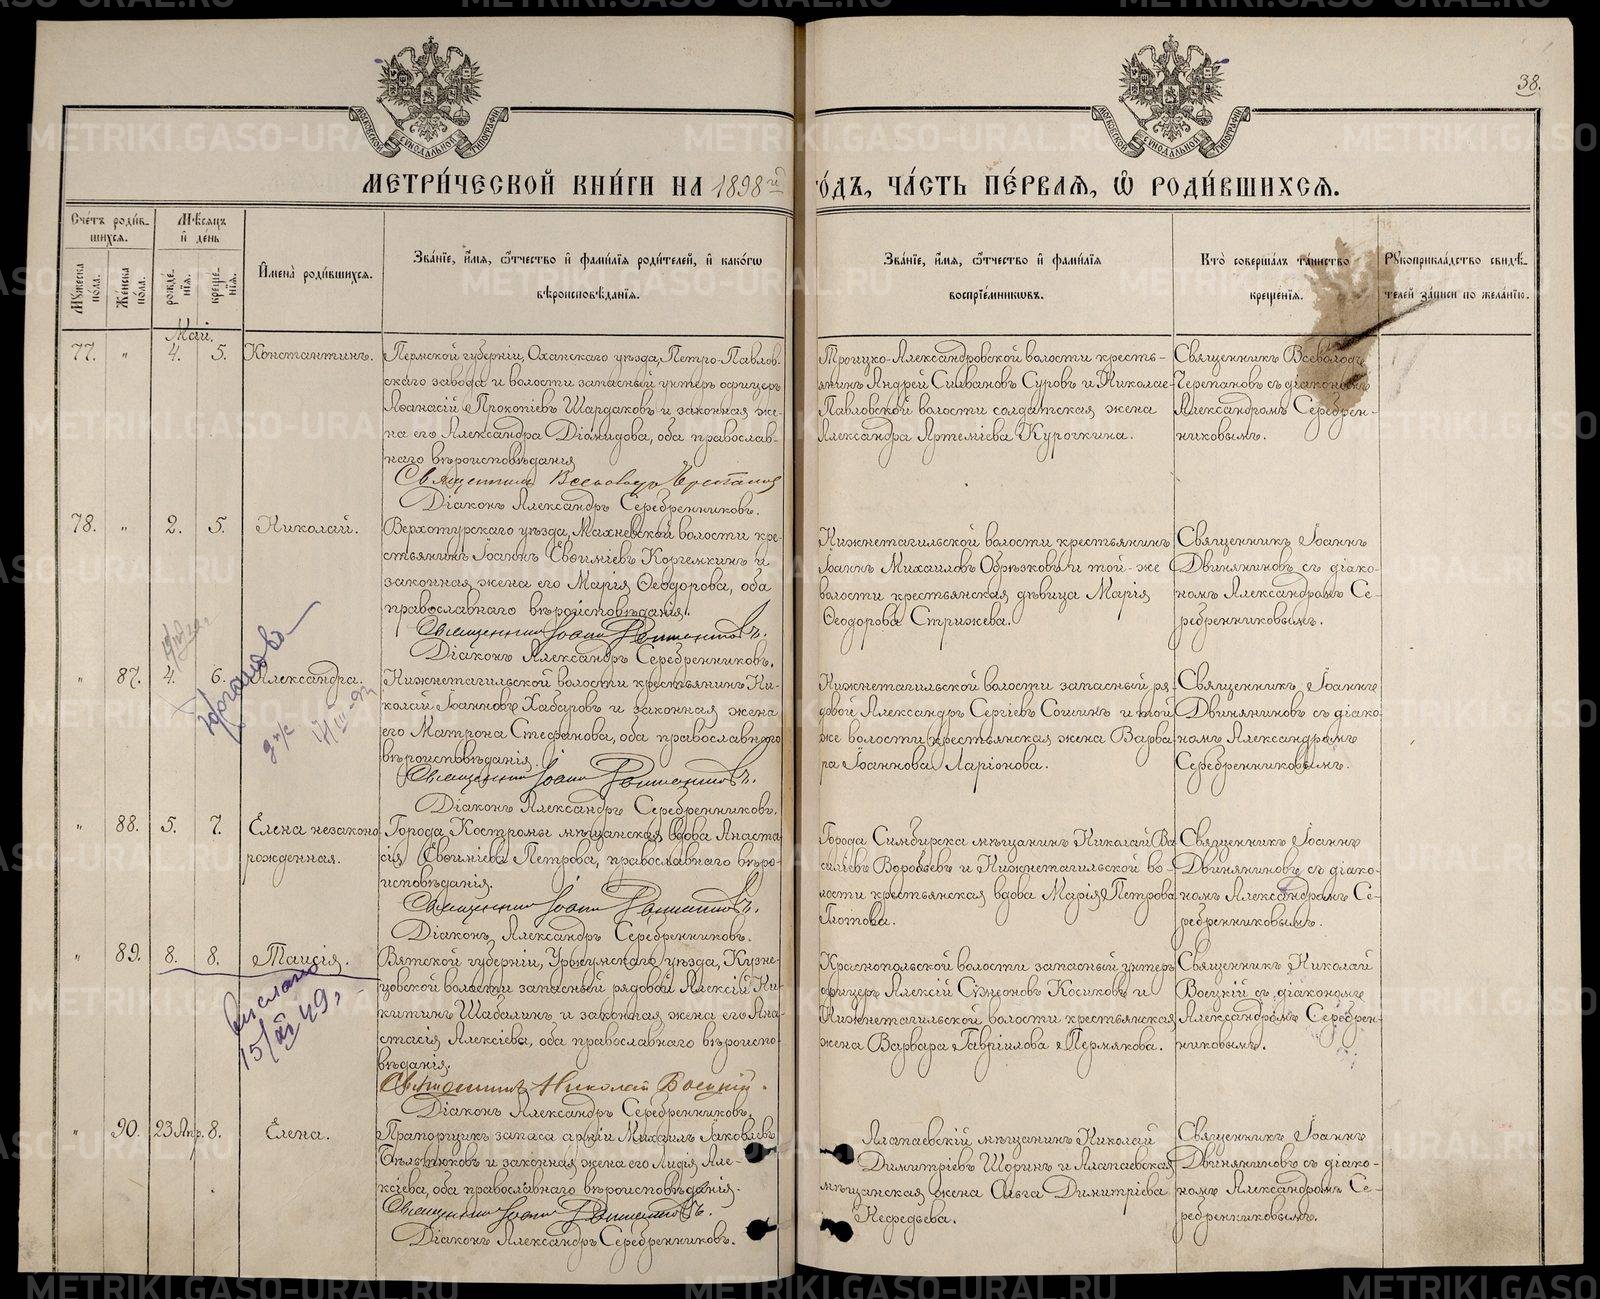 38.
МОСКОВСКОЙ СѴНОДАЛЬНОЙ ТИПОГРАФІИ
МОСКОВСКОЙ СѴНОДАЛЬНОЙ ТИПОГРАФІИ
МЕТРИ́ЧЕСКОЙ КНИ́ГИ НА 1898й ГО́ДЪ, ЧА́СТЬ ПЕ́РВАЯ, Ѡ РОДИ́ВШИХСЯ.
Сче́тъ роди́в-
шихся.
Мѣ́сяцъ
и҆ де́нь
Му́жеска
по́ла.
Же́нска
по́ла.
рожде́-
нїя.
креще́-
нїя.
И҆мена̀ роди́вшихся.
Зва́нїе, и҆́мя, ѻ҆́тчество и҆ фами́лїя роди́телей, и҆ како́гѡ
вѣроисповѣ́данїя.
Зва́нїе, и҆́мя, ѻ҆́тчество и҆ фами́лїя
воспрїе́мникѡвъ.
Кто̀ соверша́лъ та́инство
креще́нїя.
Рукоприкла́дство свидѣ́-
телей за́писи по жела́нїю.
Май.
77. " 4. 5. Константинъ.
Пермской губерніи, Оханскаго уѣзда, Петро-Павлов-
скаго завода и волости запасный унтеръ офицеръ
Аѳанасій Прокопіевъ Шардаковъ и законная же-
на его Александра Діомидова, оба православ-
наго вѣроисповѣданія
Священникъ Всеволодъ Черепановъ
Діаконъ Александръ Серебренниковъ.
Троицко-Александровской волости кресть-
янинъ Андрей Силвановъ Суровъ и Николае-
Павловской волости солдатская жена
Александра Артеміева Курочкина.
Священникъ Всеволодъ
Черепановъ съ діакономъ
Александромъ Серебрен-
никовымъ.
78. " 2. 5. Николай.
Верхотурскаго уѣзда, Махневской волости кре-
стьянинъ Іоаннъ Евѳиміевъ Коргемкинъ и
законная жена его Марія Ѳеодорова, оба
православнаго вѣроисповѣданія.
Священникъ Іоаннъ Двиняниновъ.
Діаконъ Александръ Серебренниковъ.
Нижнетагильской волости крестьянинъ
Іоаннъ Михаиловъ Обрѣзковъ и той-же
волости крестьянская дѣвица Марія
Ѳеодорова Стрижева.
Священникъ Іоаннъ
Двиняниновъ съ діако-
номъ Александромъ Се-
ребренниковымъ.
" 87. 4. 6. Александра.
Нижнетагильской волости крестьянинъ Ни-
колай Іоанновъ Хабаровъ и законная жена
его Матрона Стефанова, оба православнаго
вѣроисповѣданія.
Священникъ Іоаннъ Двиняниновъ.
Діаконъ Александръ Серебренниковъ.
Нижнетагильской волости запасный ря-
довой Александръ Сергіевъ Сошинъ и той
же волости крестьянская жена Варва-
ра Іоаннова Ларіонова.
Священникъ Іоаннъ
Двиняниновъ съ діако-
номъ Александромъ
Серебренниковымъ.
" 88. 5. 7. Елена незаконо
рожденная.
Города Костромы мѣщанская вдова Анаста-
сія Евѳиміева Петрова, православнаго вѣро-
исповѣданія.
Священникъ Іоаннъ Двиняниновъ.
Діаконъ Александръ Серебренниковъ.
Города Симбирска мѣщанинъ Николай Ва
силіевъ Воробьевъ и Нижнетагильской во-
лости крестьянская вдова Марія Петрова
Глотова.
Священникъ Іоаннъ
Двиняниновъ съ діако-
номъ Александромъ Се-
ребренниковымъ.
" 89. 8. 8. Таисія.
выслано
15/XII 49г.
Вятской губерніи, Уржумскаго уѣзда, Кузне-
цовской волости запасный рядовой Алексій Ни-
китинъ Шабалинъ и законная жена его Ана-
стасія Алексіева, оба православнаго вѣроиспо-
вѣданія.
Священникъ Николай Воецкій.
Діаконъ Александръ Серебренниковъ.
Краснопольской волости запасный унтеръ
офицеръ Алексій Симеоновъ Косиковъ и
Нижнетагильской волости крестьянская
жена Варвара Гавріилова Пермякова.
Священникъ Николай
Воецкій съ діакономъ
Александромъ Серебрен-
никовымъ.
" 90. 23 Апр. 8. Елена.
Прапорщикъ запаса арміи Михаилъ Іаковлевъ
Бѣльтюковъ и законная жена его Лидія Але-
ксіева, оба православнаго вѣроисповѣданія.
Священникъ Іоаннъ Двиняниновъ.
Діаконъ Александръ Серебренниковъ.
Алапаевскій мѣщанинъ Николай
Димитріевъ Шоринъ и Алапаевская
мѣщанская жена Ольга Димитріева
Нефедьева.
Священникъ Іоаннъ
Двиняниновъ съ діако-
номъ Александромъ Се-
ребренниковымъ.
METRIKI.GASO-URAL.RU